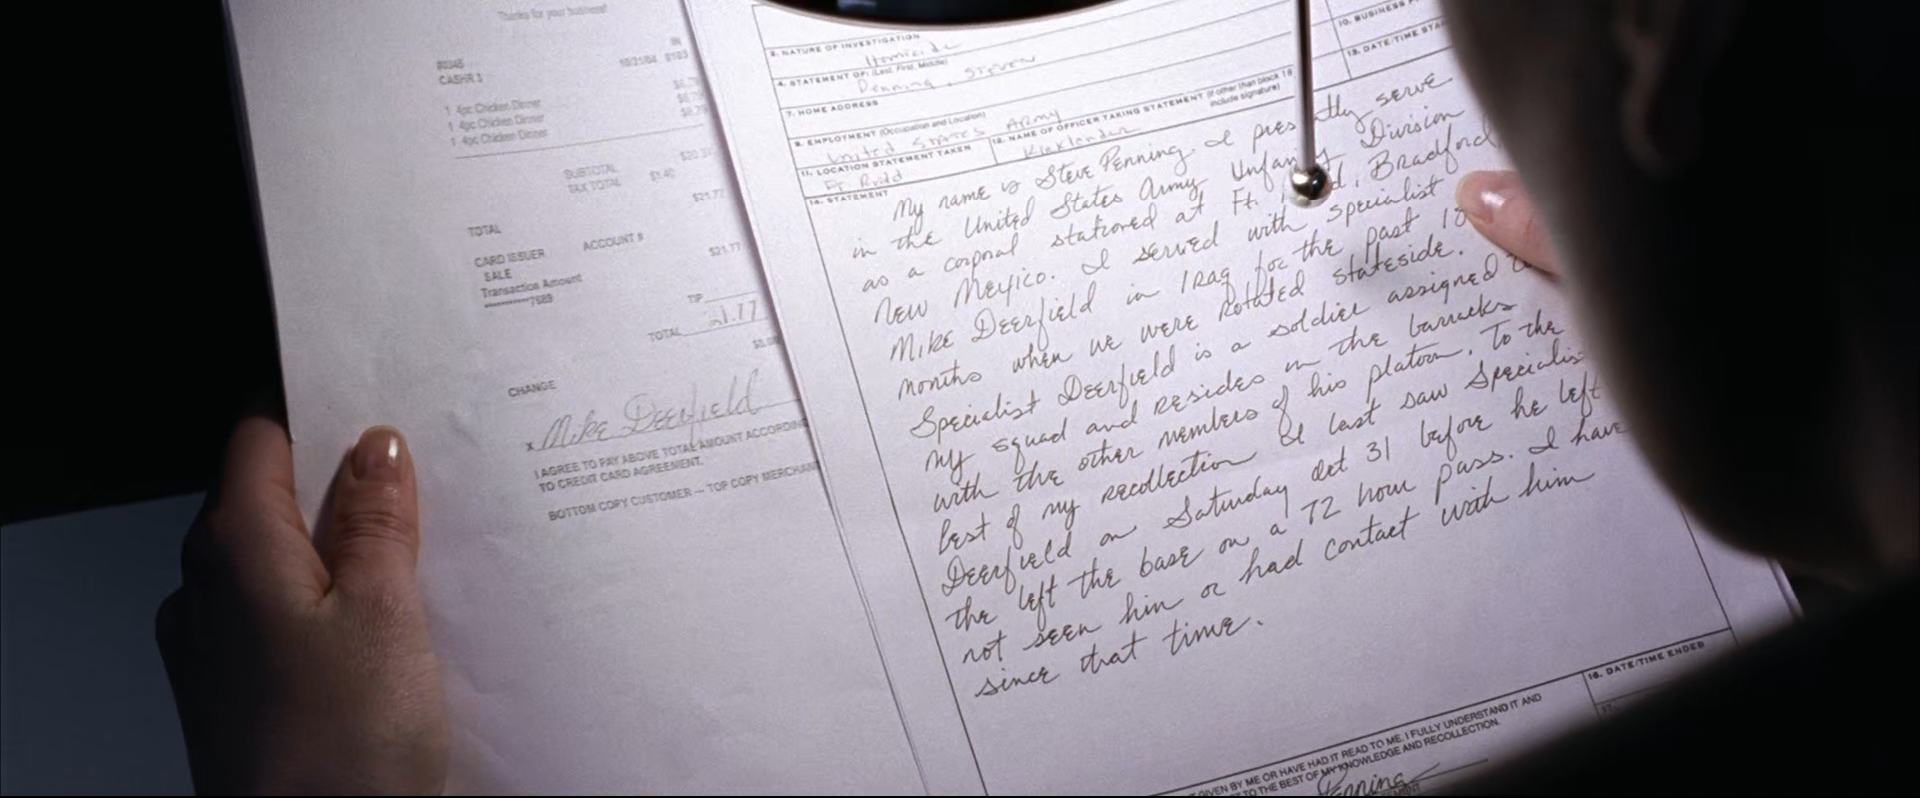 Thanks for your business!
CASHR 3
1 4pc Chicken Dinner
1 4pc Chicken Dinner
1 4pc Chicken Dinner
SUBTOTAL
TAX TOTAL $1.40
$21.77
TOTAL
CARD ISSUER ACCOUNT #
SALE $21.77
Transaction Amount
TIP
TOTAL
CHANGE
x Mike Deerfield
I AGREE TO PAY ABOVE TOTAL AMOUNT ACCORDING
TO CREDIT CARD AGREEMENT.
BOTTOM COPY CUSTOMER — TOP COPY MERCHAN
NATURE OF INVESTIGATION
Homicide
STATEMENT OF: (Last, First, Middle)
Penning, Steven
7. HOME ADDRESS
EMPLOYMENT (Occupation and Location)
United States Army
11. LOCATION STATEMENT TAKEN
Ft. Rudd
12. NAME OF OFFICER TAKING STATEMENT (If other than block 18 include signature)
10. BUSINESS
DATE/TIME
14. STATEMENT
My name is Steve Penning. I presently serve
in the United States Army Infantry Division
as a corporal stationed at Ft. Bradford,
New Mexico. I served with Specialist
Mike Deerfield in Iraq for the past 18
months when we were rotated stateside.
Specialist Deerfield is a soldier assigned to
my squad and resides in the barracks
with the other members of his platoon. To the
best of my recollection I last saw Specialis
Deerfield on Saturday Oct 31 before he left
the left the base on a 72 hour pass. I have
not seen him or had contact with him
since that time.
16. DATE/TIME ENDED
GIVEN BY ME OR HAVE HAD IT READ TO ME. I FULLY UNDERSTAND IT AND
TO THE BEST OF MY KNOWLEDGE AND RECOLLECTION.
Penning